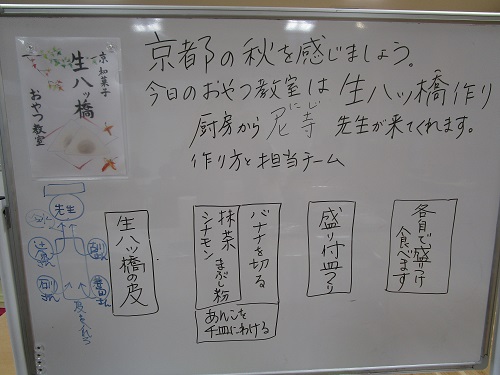 京 和菓子
生八ッ橋
おやつ教室
京都の秋を感じましょう。
今日のおやつ教室は 生八ッ橋作り
厨房から 尼寺 先生が来てくれます。
にじ
作り方と担当チーム
先生
石川さん
皮を入れたら
生八ッ橋の皮
抹茶
シナモン
まぶし粉
バナナを切る
あんこを
千皿にわける
盛り付皿づくり
各自で盛りつけ
食べます